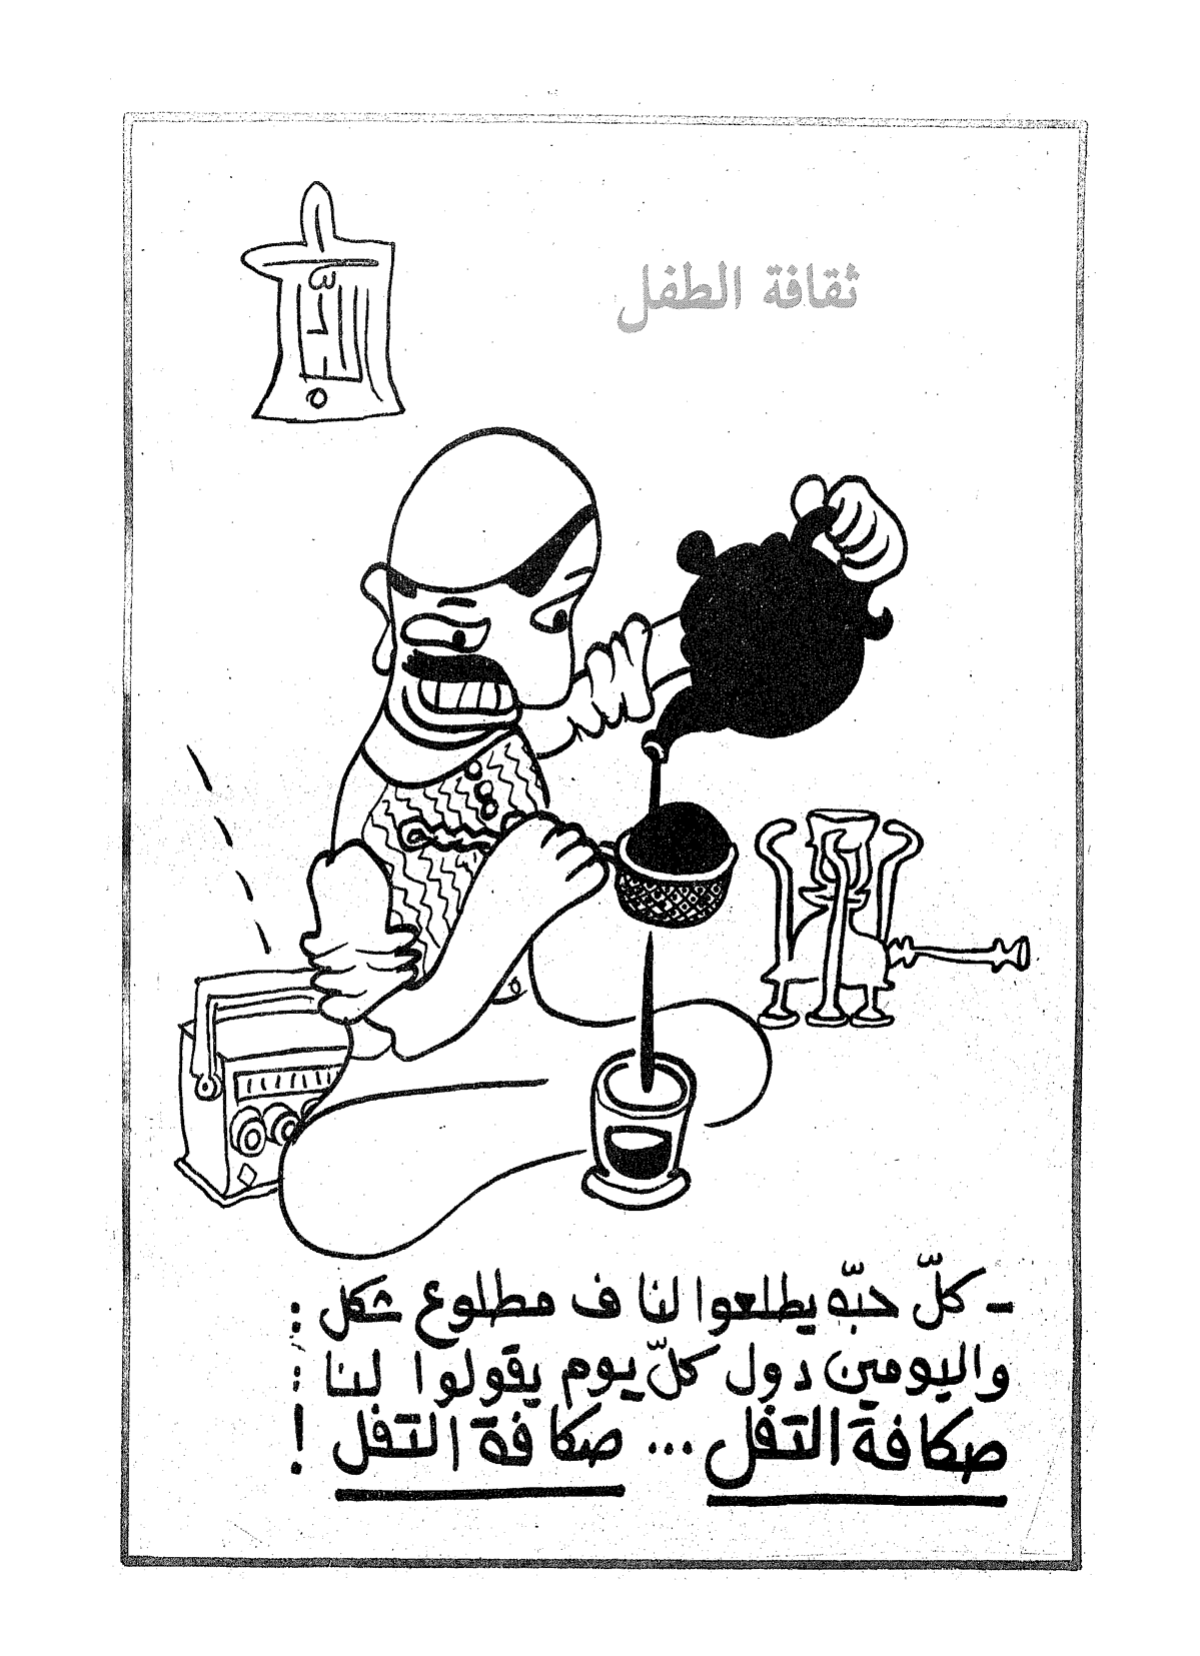 ثقافة الطفل
- كلّ حبّه يطلعوا لنا ف مطلوع شكل :
واليومين دول كلّ يوم يقولوا لنا :
صكافة التفل ... صكافة التفل !